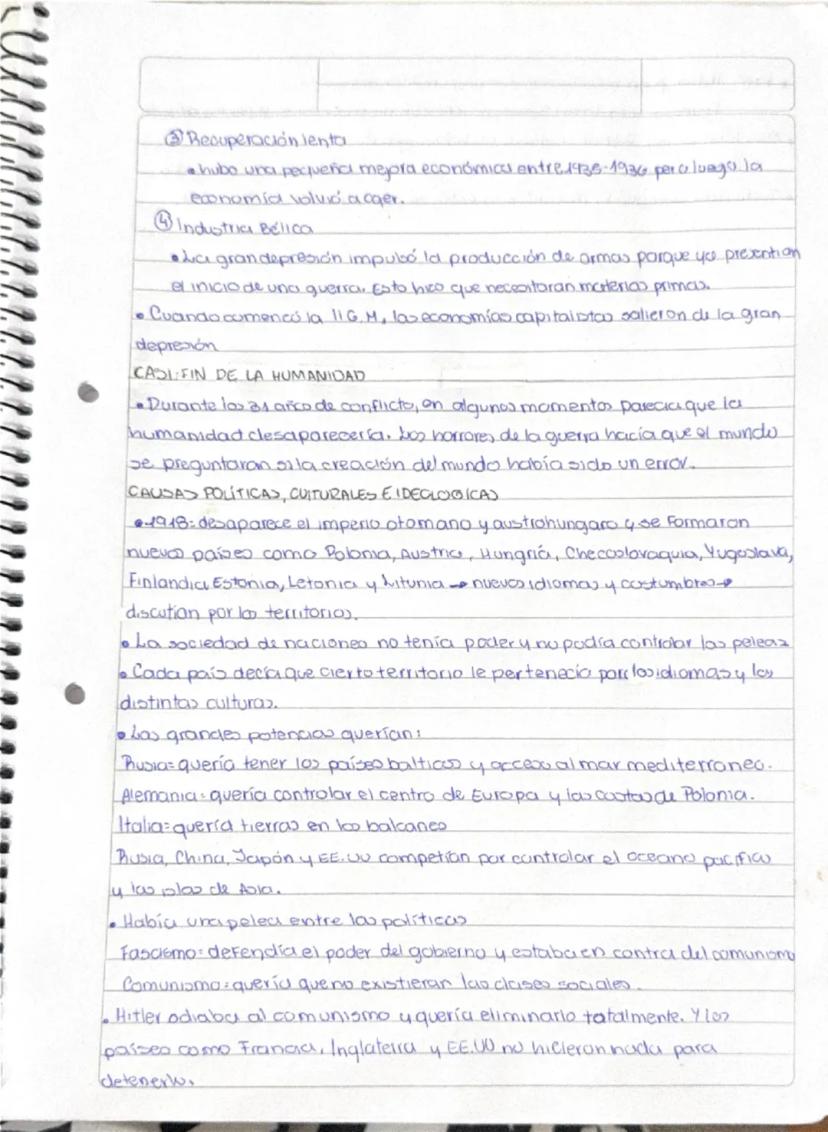 ③ Recuperación lenta
• hubo una pequeña mejora económica entre 1935-1936 pero luego la
economía volvió a caer.
④ Industria Bélica
• La gran depresión impulsó la producción de armas porque ya presentian
el inicio de una guerra. Esto hizo que necesitaran materias primas.
• Cuando comenzó la II G.M, las economías capitalistas salieron de la gran
depresión
CASI FIN DE LA HUMANIDAD
• Durante los 31 años de conflicto, en algunos momentos parecia que la
humanidad desaparecería. Los horrores de la guerra hacía que el mundo
se preguntaran si la creación del mundo había sido un error.
CAUSAS POLÍTICAS, CULTURALES E IDEOLOGICAS
• 1918: desaparece el imperio otomano y austrohungaro y se Formaron
nuevos países como Polonia, Austria, Hungría, Checoslovaquia, Yugoslava,
Finlandia Estonia, Letonia y Lituania → nuevos idiomas y costumbres →
discutian por los territorios.
• La sociedad de naciones no tenía poder y no podía controlar las peleas
• Cada país decía que cierto territorio le pertenecía por los idiomas y los
distintas culturas.
• Las grandes potencias querían:
Rusia= quería tener los países balticos y acceso al mar mediterraneo.
Alemania: quería controlar el centro de Europa y las costas de Polonia.
Italia= quería tierras en los balcanes
Rusia, China, Japón y EE.UU competían por controlar el oceano pacífico
y las islas de Asia.
• Había una pelea entre las políticas
Fascismo: defendía el poder del gobierno y estaba en contra del comunismo
Comunismo: quería que no existieran las clases sociales.
• Hitler odiaba al comunismo y quería eliminarlo totalmente. Y los
países como Francia, Inglaterra y EE.UU no hicieron nada para
detenerlo.